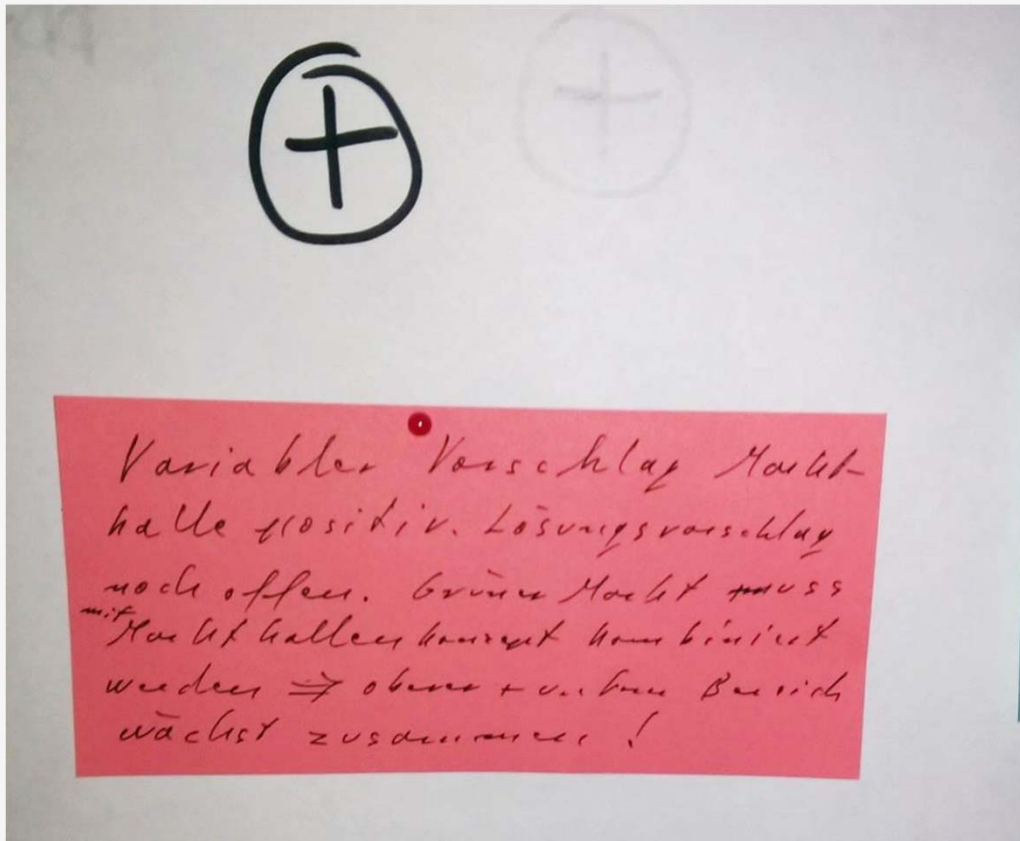 +
Variabler Vorschlag Markt-
halle positiv. Lösungsvorschlag
noch offen. Grüner Markt muss
mit Markthallenkonzept kombiniert
werden ⇒ oberer + unterer Bereich
wächst zusammen!